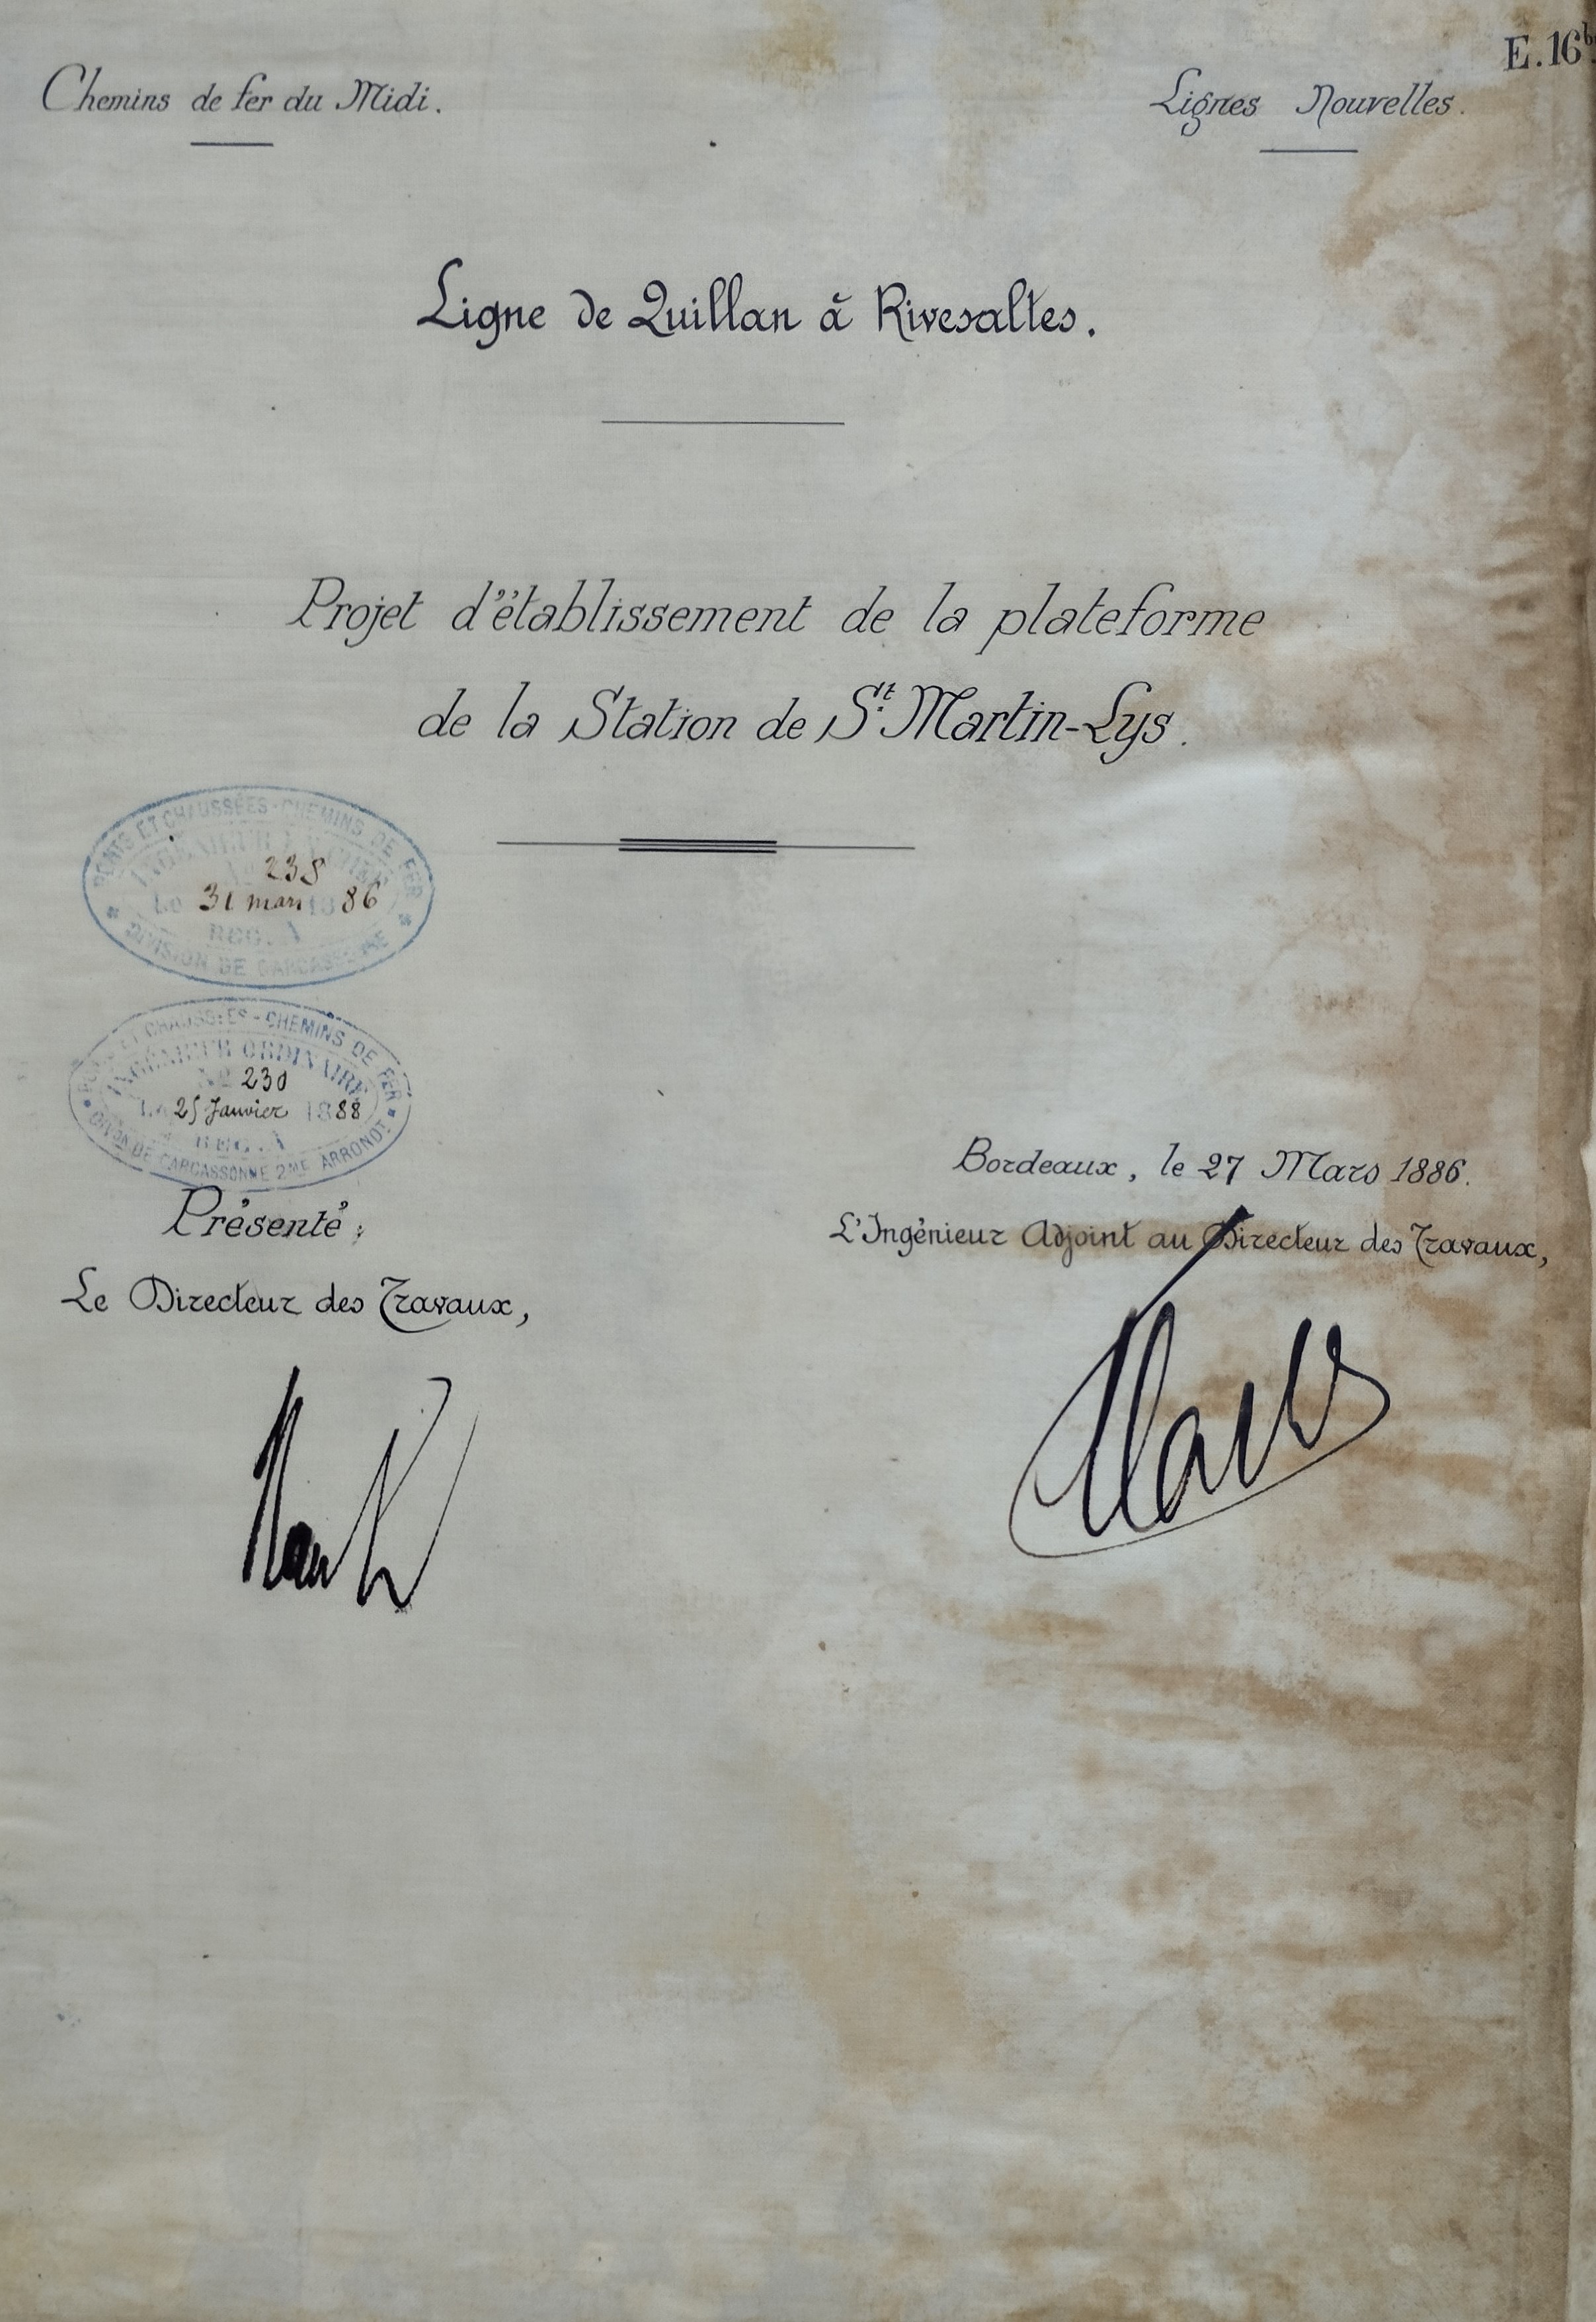 E.16
Chemins de fer du Midi.
Lignes Nouvelles.
Ligne de Quillan à Rivesaltes.
Projet d'établissement de la plateforme
de la Station de St. Martin-Lys.
PONTS ET CHAUSSÉES - CHEMINS DE FER
31 mars 1886
REG. A
DIVISION DE CARCASSONNE
PONTS ET CHAUSSÉES - CHEMINS DE FER
INGÉNIEUR ORDINAIRE
No 230
Le 25 Janvier 1888
REG. A
DIVON DE CARCASSONNE 2ME ARRONDT
Bordeaux, le 27 Mars 1886.
L'Ingénieur Adjoint au Directeur des Travaux,
Présenté:
Le Directeur des Travaux,